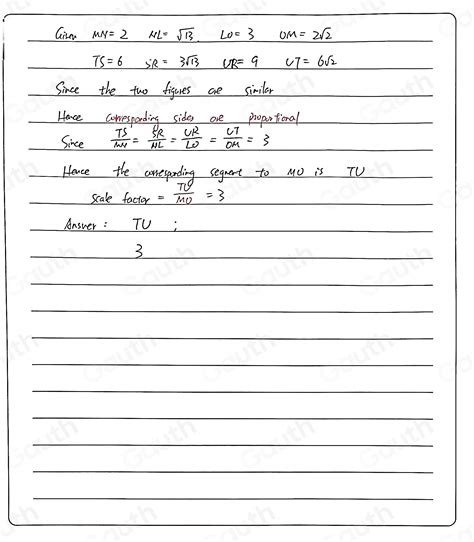 Given MN = 2 NL = √13 LO = 3 OM = 2√2
TS = 6 SR = 3√13 UR = 9 UT = 6√2
Since the two figures are similar
Hence corresponding sides are proportional
Since TS/MN = SR/NL = UR/LO = UT/OM = 3
Hence the corresponding segment to MO is TU
scale factor = TU/MO = 3
Answer : TU ;
3
Gauth